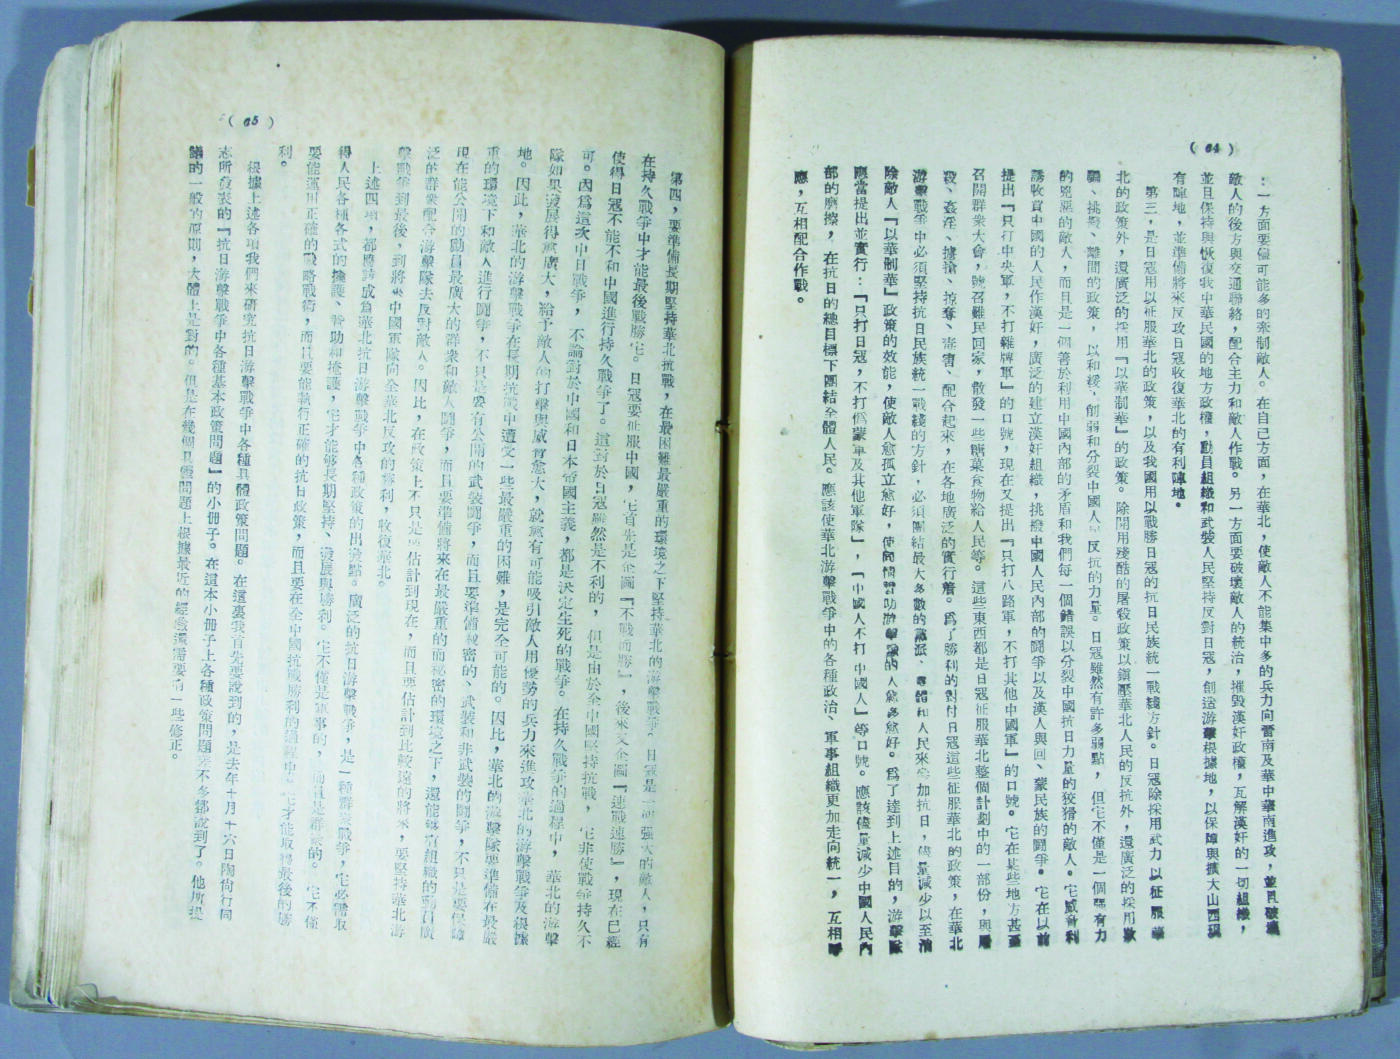 ( 64 )
：一方面要儘可能多的牽制敵人。在自己方面，在華北，使敵人不能集中多的兵力向晉南及華中華南進攻，並且破壞
敵人的後方與交通聯絡，配合主力和敵人作戰。另一方面要破壞敵人的統治，摧毀漢奸政權，瓦解漢奸的一切組織，
並且保持與恢復我中華民國的地方政權，動員組織和武裝人民堅持反對日寇，創造游擊根據地，以保障與擴大山西現
有陣地，並準備將來反攻日寇收復華北的有利陣地。
第三，是日寇用以征服華北的政策，以及我國用以戰勝日寇的抗日民族統一戰綫方針。日寇除採用武力以征服華
北的政策外，還廣泛的採用『以華制華』的政策。除開用殘酷的屠殺政策以鎮壓華北人民的反抗外，還廣泛的採用欺
騙、挑撥、離間的政策，以和緩、削弱和分裂中國人民反抗的力量。日寇雖然有許多弱點，但它不僅是一個還有力
的兇惡的敵人，而且是一個善於利用中國內部的矛盾和我們每一個錯誤以分裂中國抗日力量的狡猾的敵人。它威脅利
誘收買中國的人民作漢奸，廣泛的建立漢奸組織，挑撥中國人民內部的鬪爭以及漢人與回、蒙民族的鬪爭。它在以前
提出『只打中央軍，不打雜牌軍』的口號，現在又提出『只打八路軍，不打其他中國軍』的口號。它在某些地方甚至
召開羣衆大會，號召難民回家，散發一些糖菓食物給人民等。這些東西都是日寇征服華北整個計劃中的一部份，與屠
殺、姦淫、擄搶、掠奪、毒害、配合起來，在各地廣泛的實行着。爲了勝利的對付日寇這些征服華北的政策，在華北
游擊戰爭中必須堅持抗日民族統一戰綫的方針，必須團結最大多數的黨派、團體和人民來參加抗日，儘量減少以至消
除敵人『以華制華』政策的效能，使敵人愈孤立愈好，使同情贊助游擊隊的人愈多愈好。爲了達到上述目的，游擊隊
應當提出並實行：『只打日寇，不打僞蒙軍及其他軍隊』，『中國人不打中國人』等口號。應該儘量減少中國人民內
部的磨擦，在抗日的總目標下團結全體人民。應該使華北游擊戰爭中的各種政治、軍事組織更加走向統一，互相呼
應，互相配合作戰。
( 65 )
第四，要準備長期堅持華北抗戰，在最困難最嚴重的環境之下堅持華北的游擊戰爭。日寇是一個强大的敵人，只有
在持久戰爭中才能最後戰勝它。日寇要征服中國，它首先是企圖『不戰而勝』，後來又企圖『速戰速勝』，現在已經
使得日寇不能不和中國進行持久戰爭了。這對於日寇雖然是不利的，但是由於全中國堅持抗戰，它非使戰爭持久不
可。因爲這次中日戰爭，不論對於中國和日本帝國主義，都是決定生死的戰爭。在持久戰爭的過程中，華北的游擊
隊如果發展得愈廣大，給予敵人的打擊與威脅愈大，就愈有可能吸引敵人用優勢的兵力來進攻華北的游擊戰爭及根據
地。因此，華北的游擊戰爭在長期抗戰中遭受一些最嚴重的困難，是完全可能的。因此，華北的游擊隊要準備在最嚴
重的環境下和敵人進行鬪爭，不只是要有公開的武裝鬪爭，而且要準備秘密的、武裝和非武裝的鬪爭，不只是要保障
現在能公開的動員最廣大的群衆和敵人鬪爭，而且要準備將來在最嚴重的而秘密的環境之下，還能够有組織的動員廣
泛的群衆配合游擊隊去反對敵人。因此，在政策上不只是要估計到現在，而且要估計到比較遠的將來，要堅持華北游
擊戰爭到最後，到將來中國軍隊向全華北反攻的勝利，收復華北。
上述四項，都應該成爲華北抗日游擊戰爭中各種政策的出發點。廣泛的抗日游擊戰爭，是一種群衆戰爭，它必需取
得人民各種各式的擁護、贊助和掩護，它才能够長期堅持、發展與勝利。它不僅是軍事的，而且是群衆的。它不僅
要能運用正確的戰略戰術，而且要能執行正確的抗日政策，而且要在全中國抗戰勝利的過程中，它才能取得最後的勝
利。
根據上述各項我們來研究抗日游擊戰爭中各種具體政策問題。在這裏我首先要說到的，是去年十月十六日陶尚行同
志所發表的『抗日游擊戰爭中各種基本政策問題』的小冊子。在這本小冊子上各種政策問題差不多都說到了。他所提
出的一般的原則，大體上是對的。但是在幾個具體問題上根據最近的經驗還需要有一些修正。